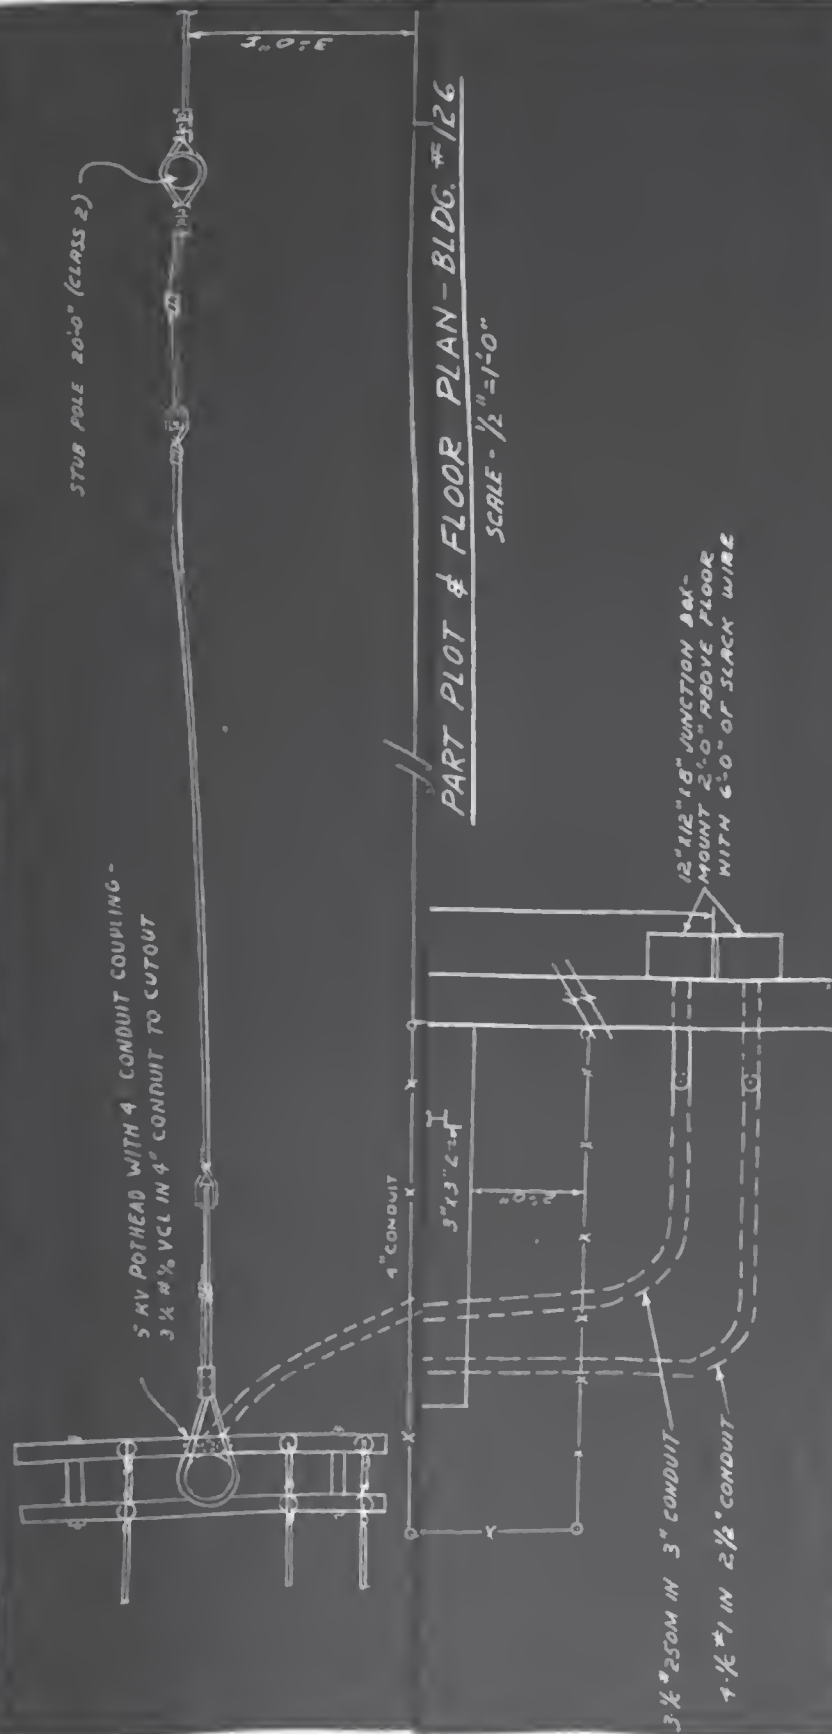 STUB POLE 20'-0" (CLASS 2)
3'-0"
PART PLOT & FLOOR PLAN - BLDG. #126
SCALE - 1/2" = 1'-0"
5 KV POTHEAD WITH 4" CONDUIT COUPLING -
VCL IN 4" CONDUIT TO CUTOUT
4" CONDUIT
3" X 3"
2'-0"
12" X 12" X 8" JUNCTION BOX -
MOUNT 2'-0" ABOVE FLOOR
WITH 6'-0" OF SLACK WIRE
3 1/C #250M IN 3" CONDUIT
4-1/C #1 IN 2 1/2" CONDUIT